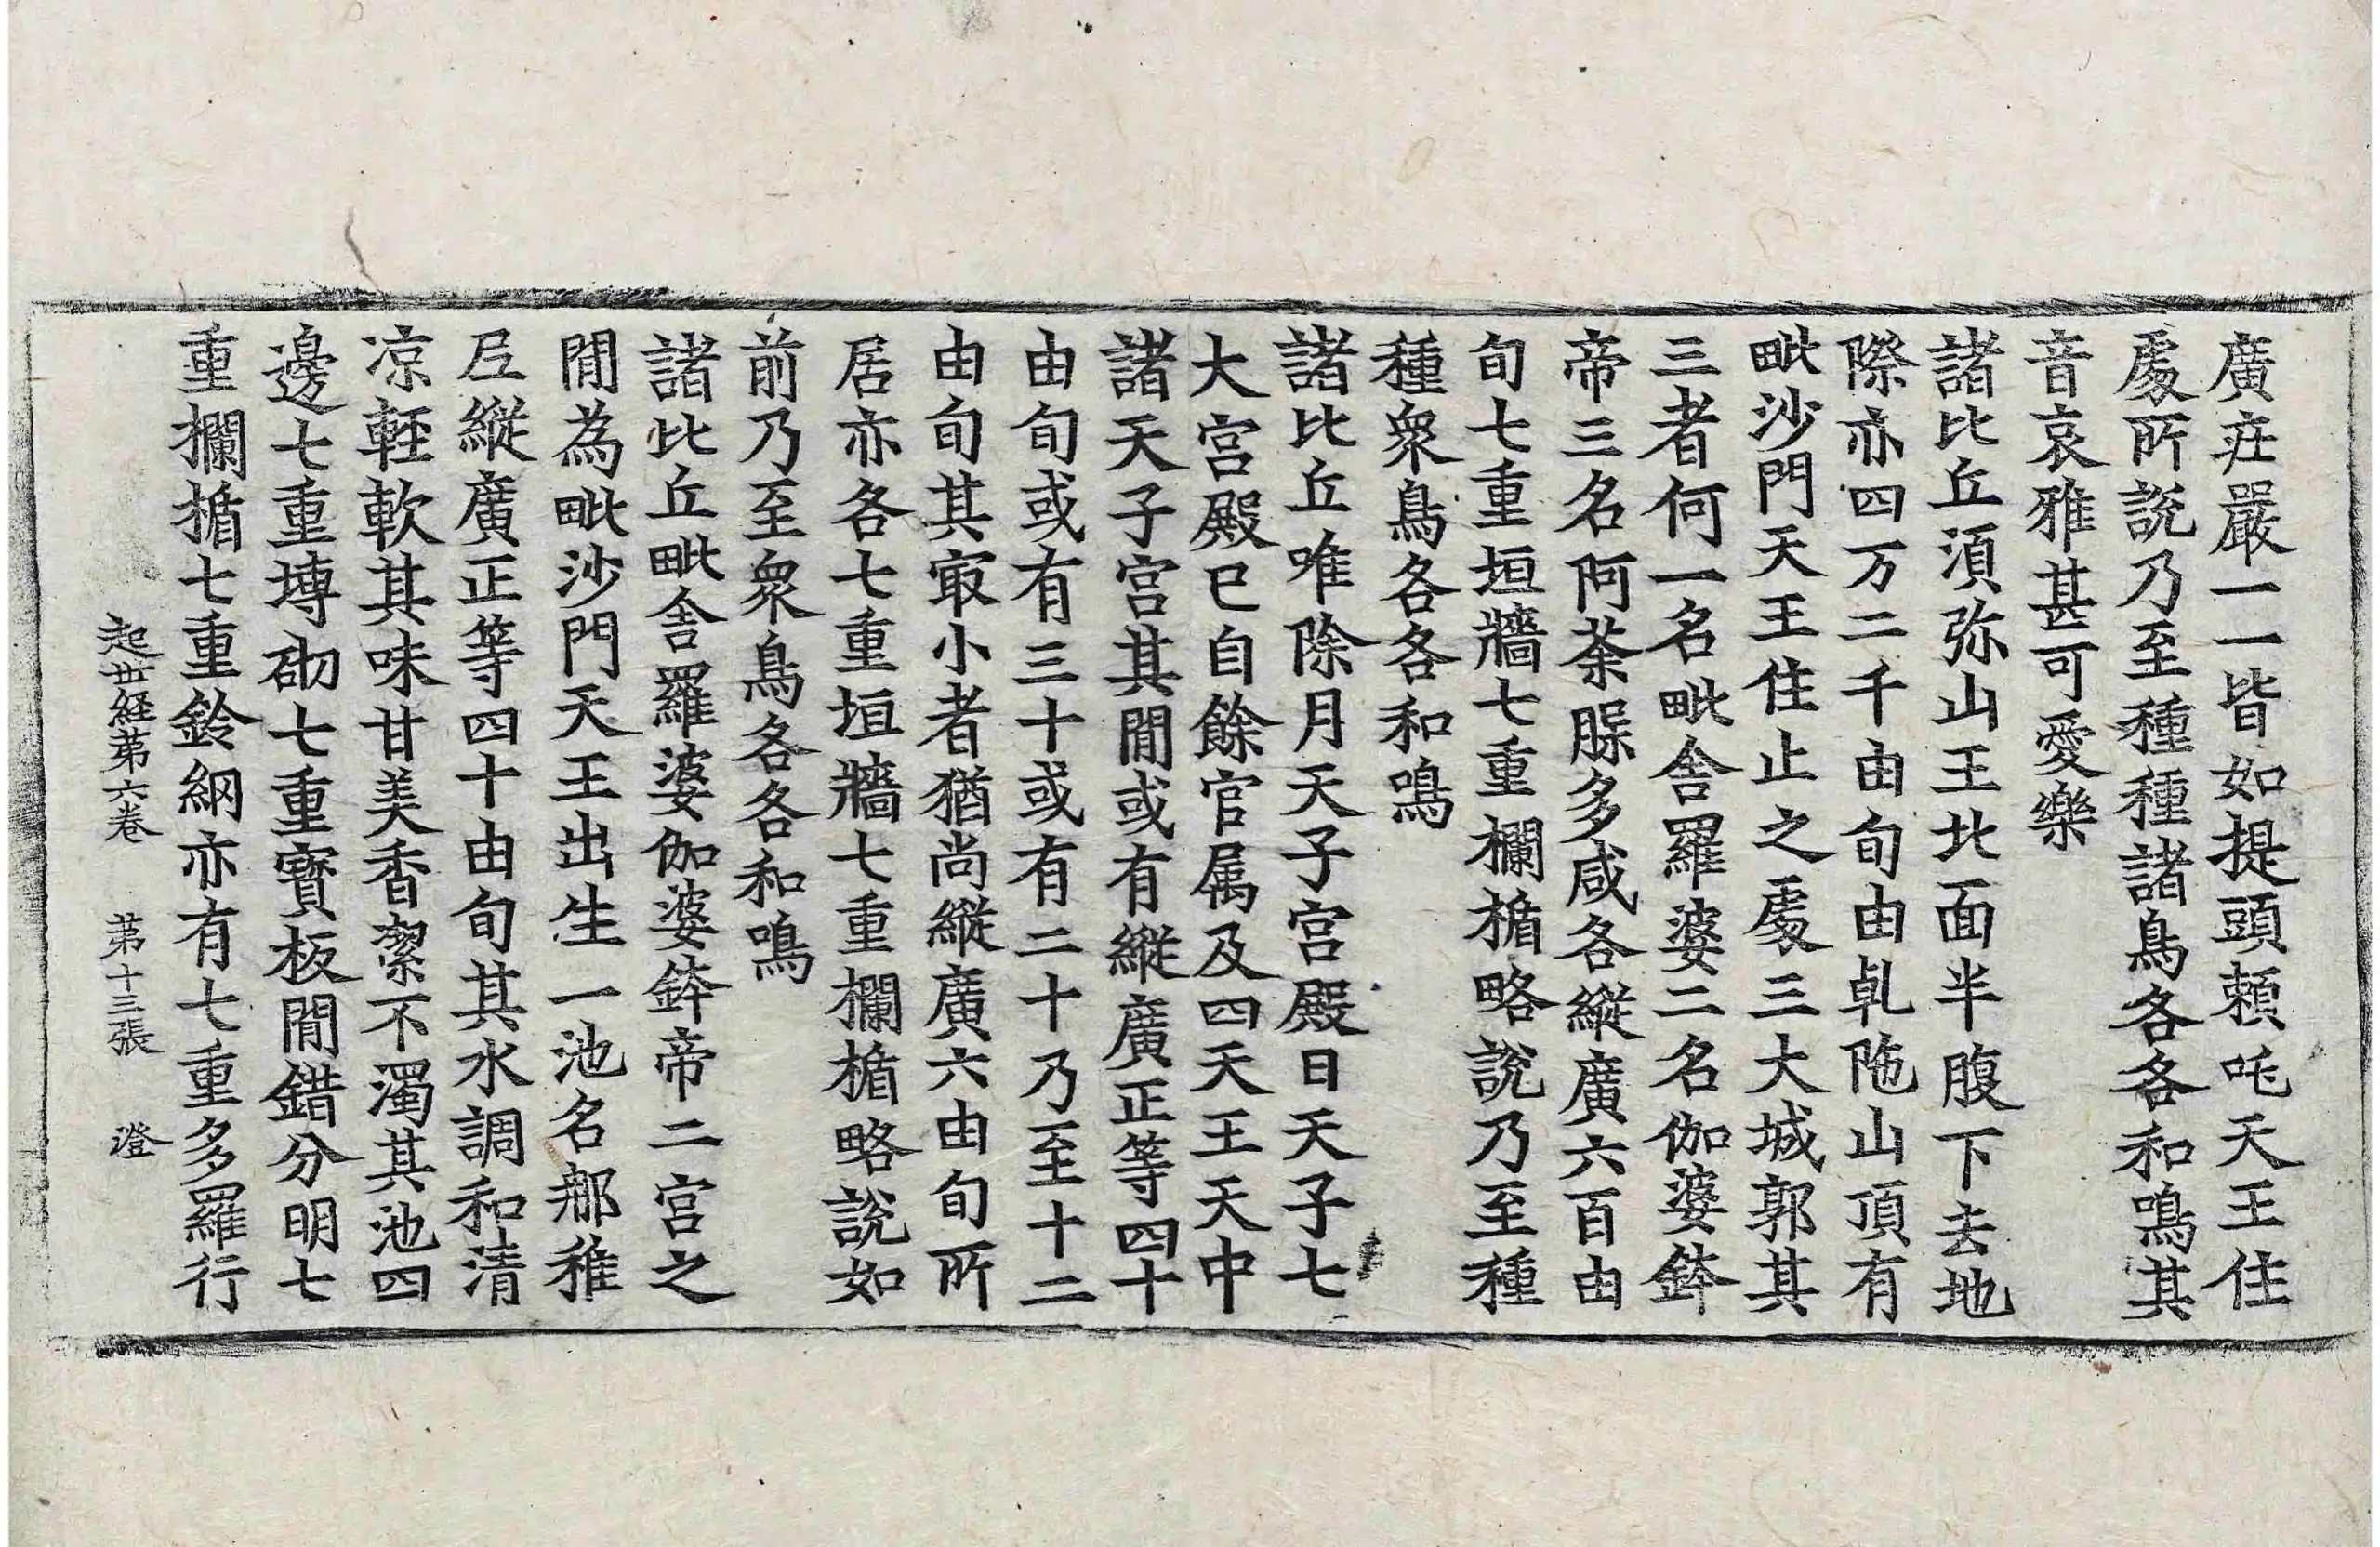 廣疘嚴一一皆如提頭頼吒天王住
䖏所說乃至種種諸鳥各各和鳴其
音哀雅甚可愛樂
諸比丘湏弥山王北面半腹下去地
際亦四万二千由旬由乹陁山頂有
毗沙門天王住止之䖏三大城郭其
三者何一名毗舎羅婆二名伽婆鉢
帝三名阿荼脲多咸各縱廣六百由
旬七重垣牆七重欄楯略說乃至種
種衆鳥各各和鳴
諸比丘唯除月天子宮殿日天子七
大宮殿已自餘官属及四天王天中
諸天子宮其閒或有縱廣正等四十
由旬或有三十或有二十乃至十二
由旬其㝡小者猶尚縱廣六由旬所
居亦各七重垣牆七重欄楯略說如
前乃至衆鳥各各和鳴
諸比丘毗舎羅婆伽婆鉢帝二宮之
閒為毗沙門天王出生一池名𨚗稚
𡰱縱廣正等四十由旬其水調和清
凉軽軟其味甘美香潔不濁其池四
邊七重塼砌七重寳板閒錯分明七
重欄楯七重鈴網亦有七重多羅行
起世経苐六卷 苐十三張 澄